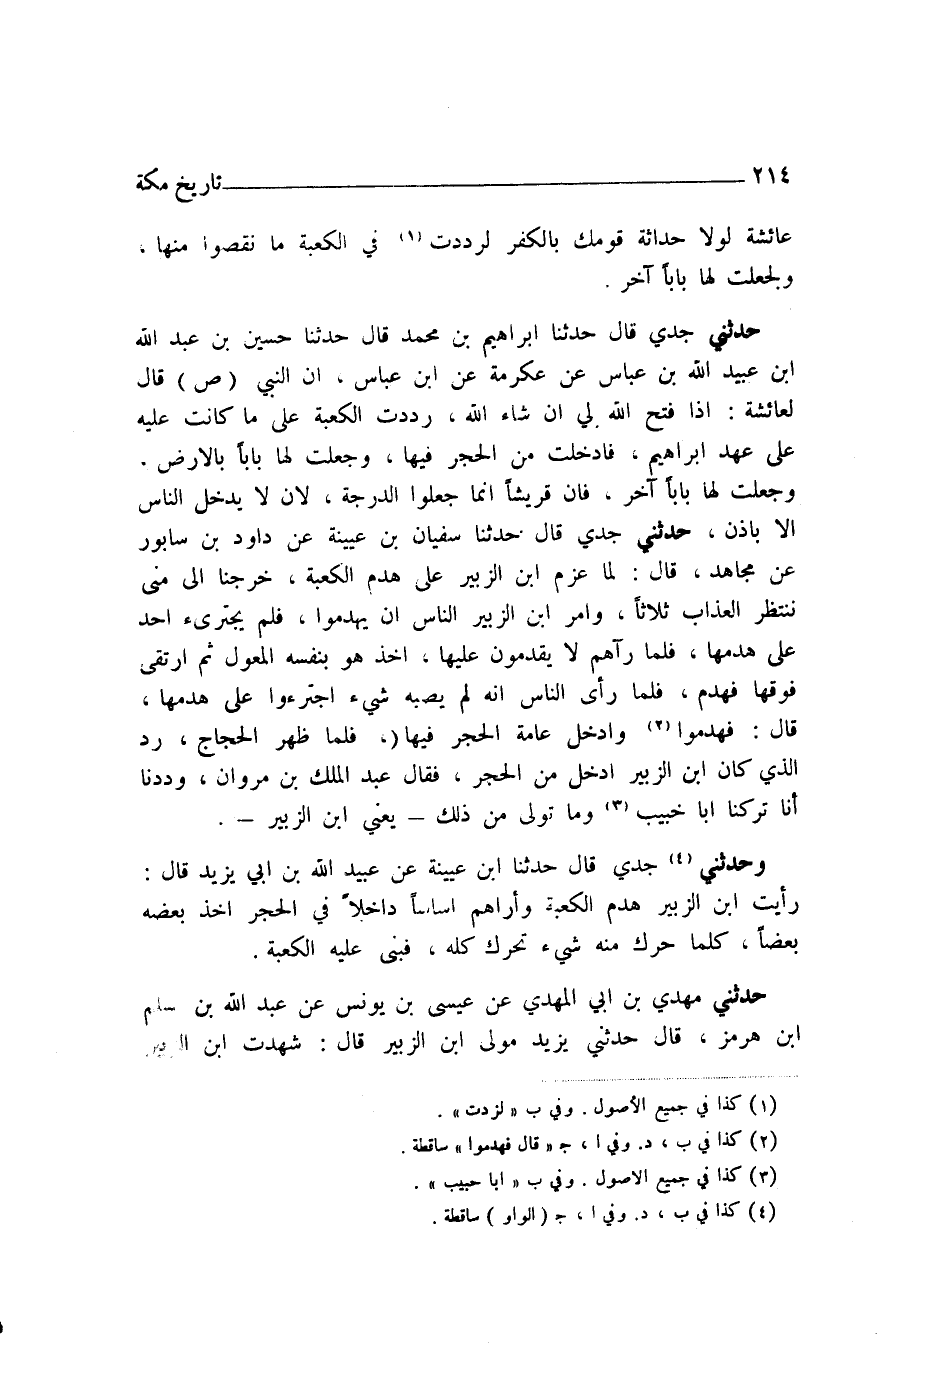 ٢١٤ تاريخ مكة
عائشة لولا حداثة قومك بالكفر لرددت (١) في الكعبة ما نقصوا منها ،
ولجعلت لها باباً آخر .
حدثني جدي قال حدثنا ابراهيم بن محمد قال حدثنا حسين بن عبد الله
ابن عبيد الله بن عباس عن عكرمة عن ابن عباس ، ان النبي ( ص ) قال
لعائشة : اذا فتح الله لي ان شاء الله ، رددت الكعبة على ما كانت عليه
على عهد ابراهيم ، فادخلت من الحجر فيها ، وجعلت لها باباً بالارض .
وجعلت لها باباً آخر ، فان قريشاً انما جعلوا الدرجة ، لان لا يدخل الناس
الا باذن ، حدثني جدي قال حدثنا سفيان بن عيينة عن داود بن سابور
عن مجاهد ، قال : لما عزم ابن الزبير على هدم الكعبة ، خرجنا الى منى
ننتظر العذاب ثلاثاً ، وامر ابن الزبير الناس ان يهدموا ، فلم يجترىء احد
على هدمها ، فلما رآهم لا يقدمون عليها ، اخذ هو بنفسه المعول ثم ارتقى
فوقها فهدم ، فلما رأى الناس انه لم يصبه شيء اجترءوا على هدمها ،
قال : فهدموا (٢) وادخل عامة الحجر فيها(، فلما ظهر الحجاج ، رد
الذي كان ابن الزبير ادخل من الحجر ، فقال عبد الملك بن مروان ، وددنا
أنا تركنا ابا خبيب (٣) وما تولى من ذلك – يعني ابن الزبير – .
وحدثني (٤) جدي قال حدثنا ابن عيينة عن عبيد الله بن ابي يزيد قال :
رأيت ابن الزبير هدم الكعبة وأراهم اساساً داخلاً في الحجر اخذ بعضه
بعضاً ، كلما حرك منه شيء تحرك كله ، فبنى عليه الكعبة .
حدثني مهدي بن ابي المهدي عن عيسى بن يونس عن عبد الله بن
ابن هرمز ، قال حدثني يزيد مولى ابن الزبير قال : شهدت ابن الزبير
(١) كذا في جميع الأصول . وفي ب « لزدت » .
(٢) كذا في ب ، د. وفي ا ، ج « قال فهدموا » ساقطة .
(٣) كذا في جميع الاصول . وفي ب « ابا حبيب » .
(٤) كذا في ب ، د. وفي ا ، ج ( الواو ) ساقطة .